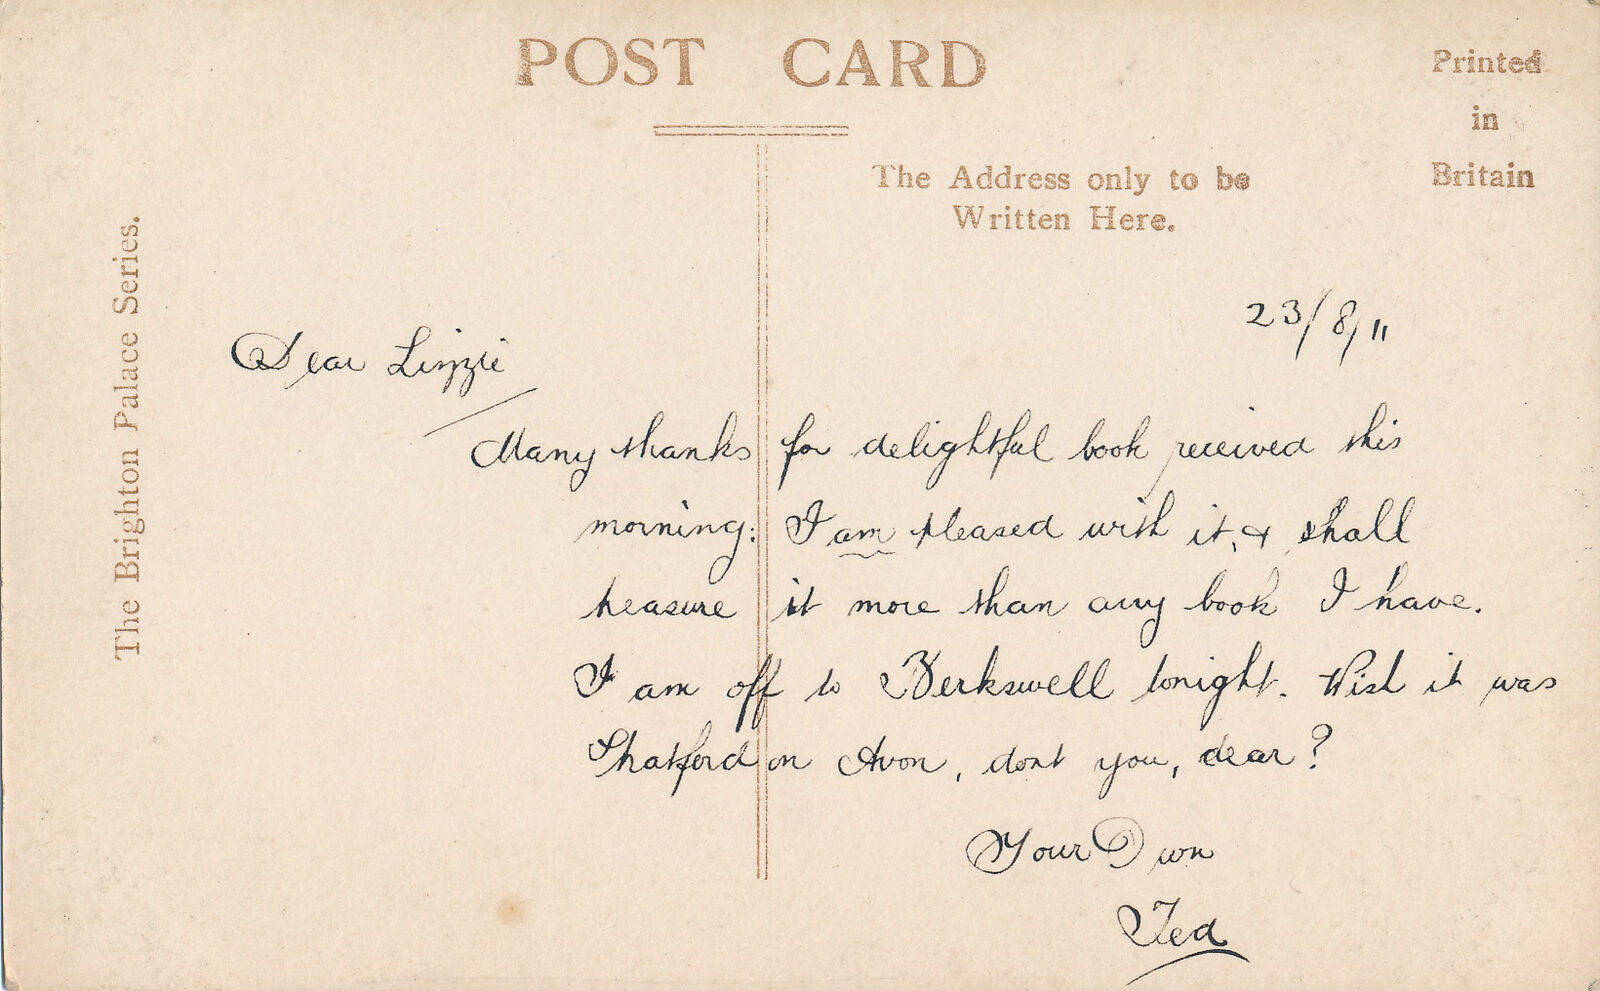 POST CARD
Printed
in
Britain
The Address only to be
Written Here.
The Brighton Palace Series.
23/8/11
Dear Lizzie
Many thanks for delightful book received this
morning: I am pleased with it, & shall
treasure it more than any book I have.
I am off to Berkswell tonight. Wish it was
Stratford on Avon, dont you, dear?
Your Own
Ted